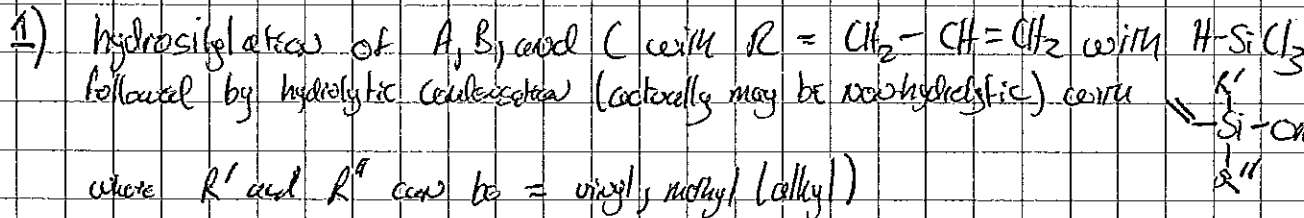 1) hydrosilylation of A, B, and C with R = CH2-CH=CH2 with H-SiCl3
followed by hydrolytic condensation (actually may be nonhydrolytic) with
R'
Si
R''
where R' and R'' can be = vinyl, methyl (alkyl)